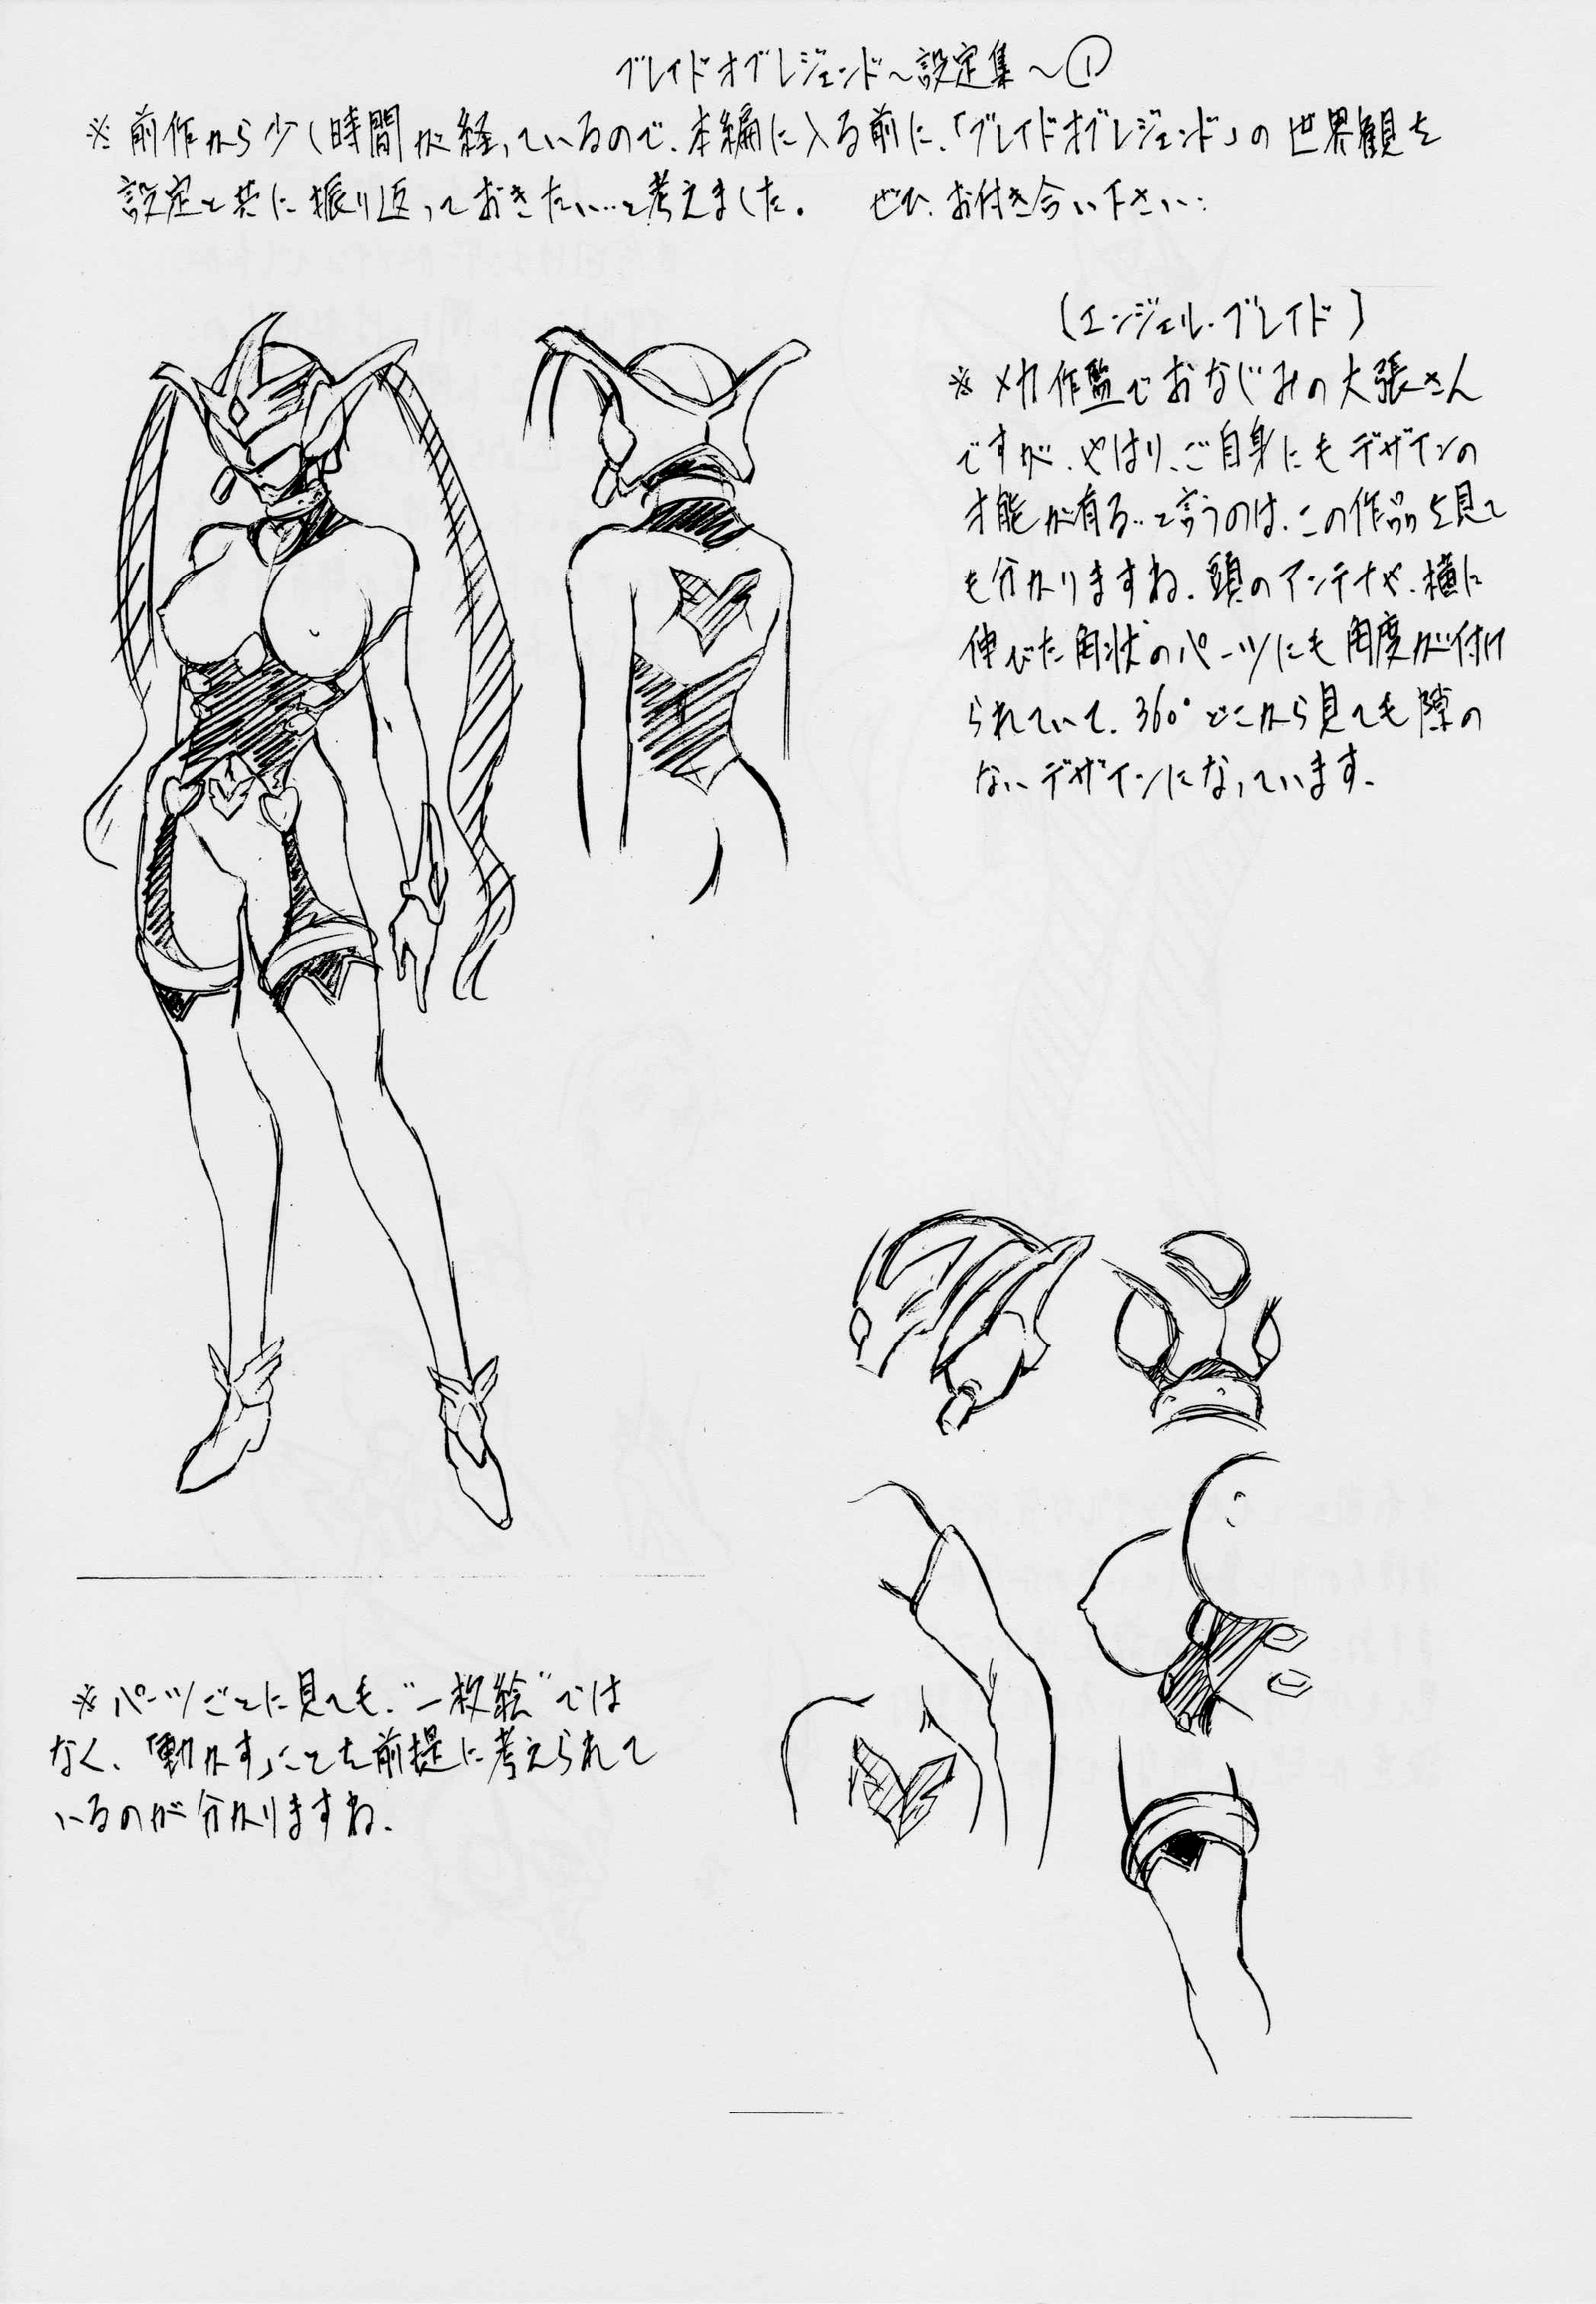 ブレイドオブレジェンド〜設定集〜①
※前作から少し時間が経っているので、本編に入る前に、「ブレイドオブレジェンド」の世界観を
設定と共に振り返っておきたい…と考えました。 ぜひ、お付き合い下さい…
(エンジェル・ブレイド)
※メカ作監でおなじみの大張さん
ですが、やはり、ご自身にもデザインの
才能が有る…と言うのは、この作品を見て
も分かりますね。頭のアンテナや、横に
伸びた角状のパーツにも角度が付け
られていて、360°どこから見ても隙の
ないデザインになっています。
※パーツごとに見ても、"一枚絵"では
なく、「動かす」ことを前提に考えられて
いるのが分かりますね。